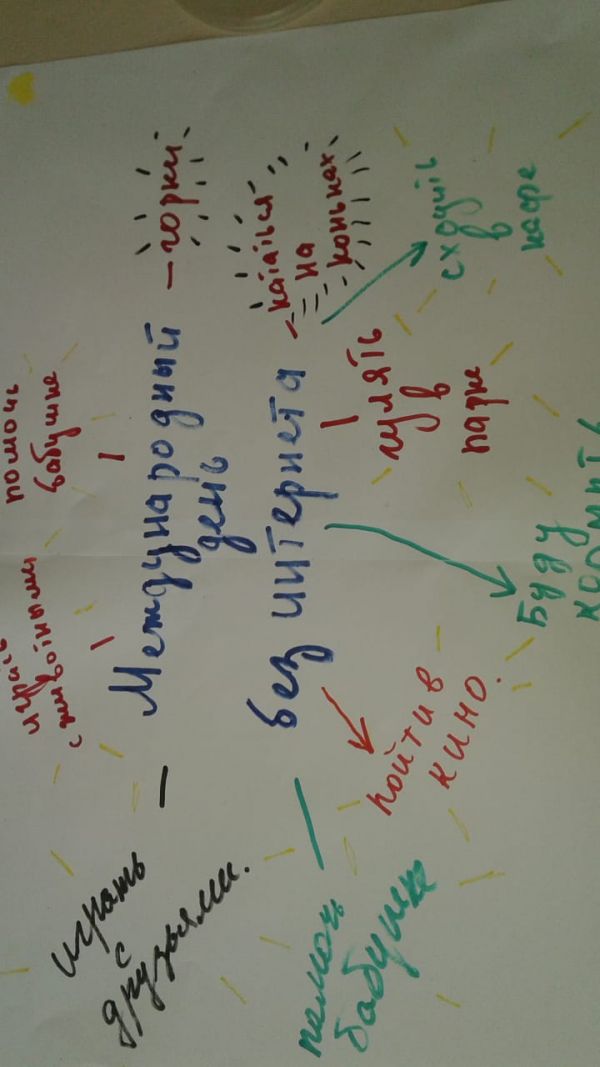 Международный
день
без интернета
— горки
кататься
на
коньках
сходить
в
кафе
гулять
в
парке
Буду
кормить
пойти в
кино.
помочь
бабушке
играть
с
друзьями.
играть
с животными
помочь
бабушке